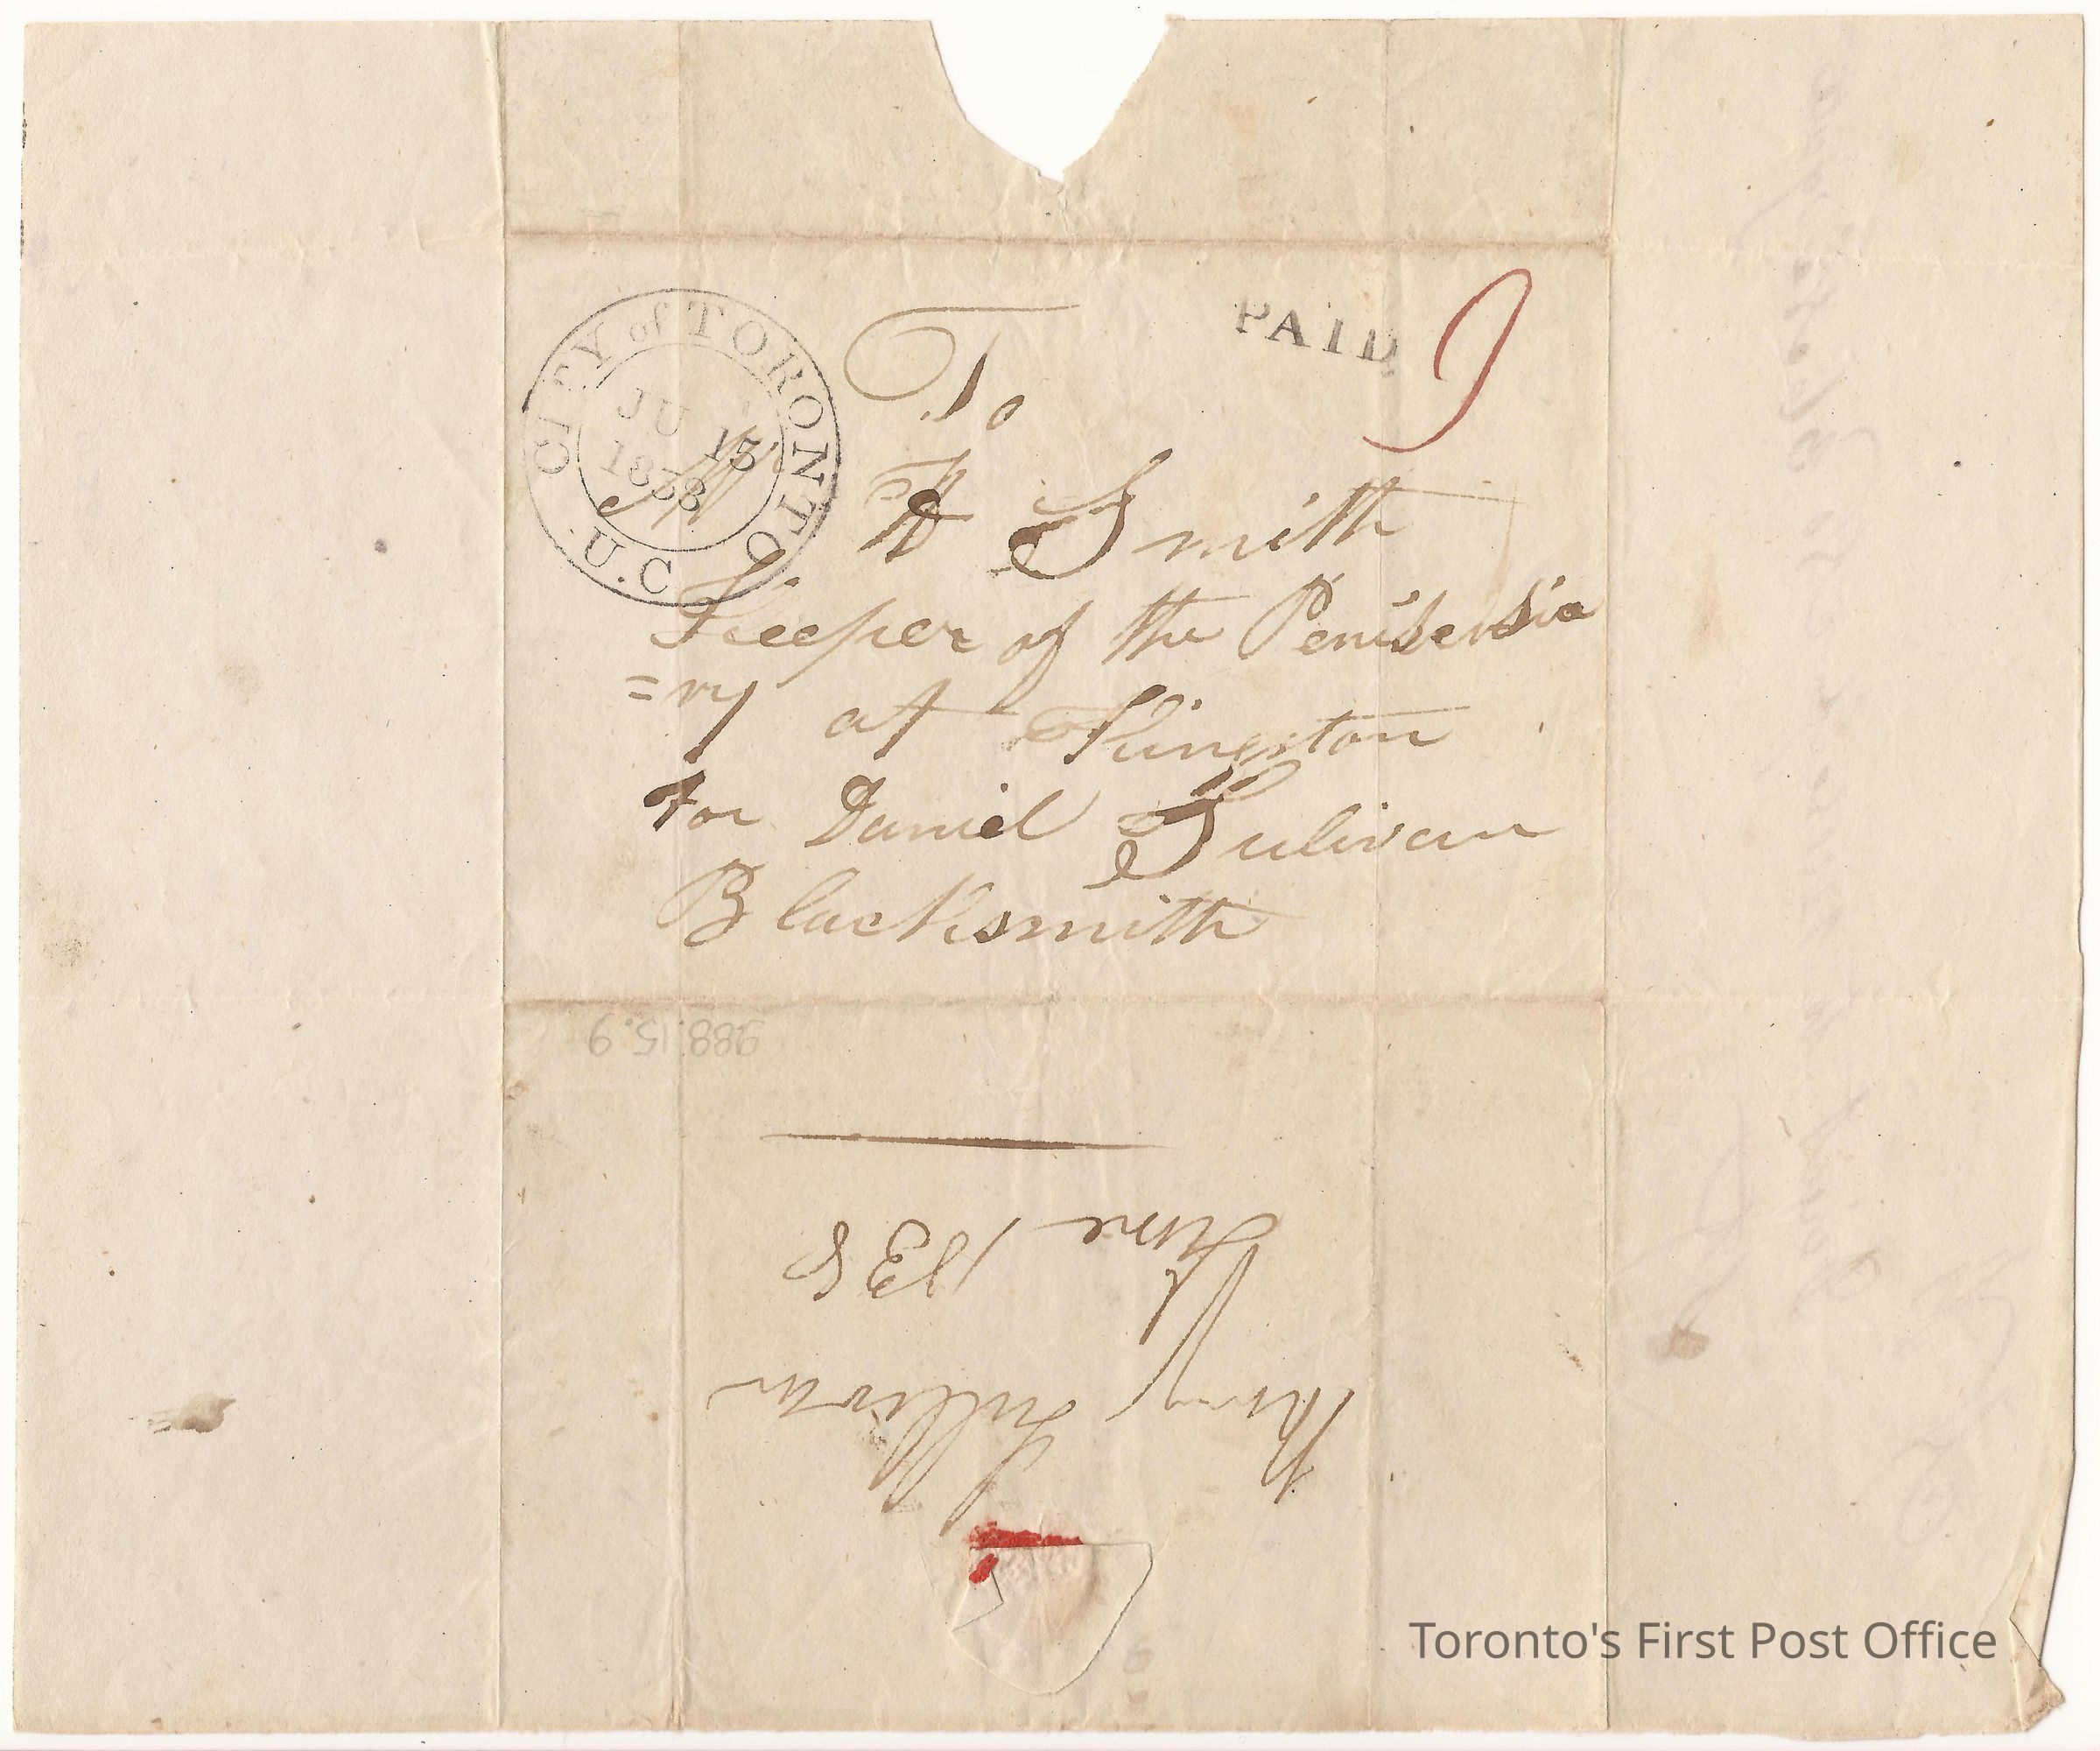 CITY of TORONTO
JU 13
1838
U.C
PAID
9
To
H Smith
Keeper of the Penitentia
=ry at Kingston
for Daniel Sulivan
Blacksmith
988.15.9
Sullivan
June 1838
Toronto's First Post Office